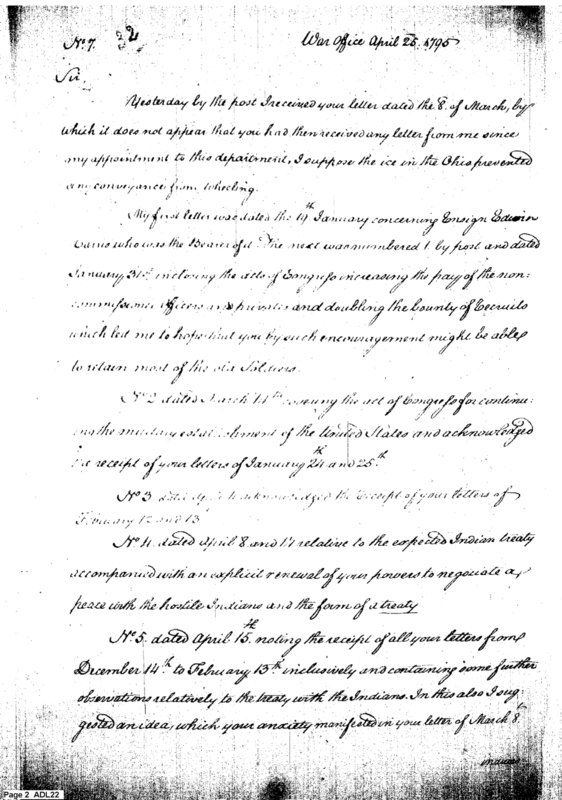 No. 7.
War Office April 25. 1795
Sir
Yesterday by the post I received your letter dated the 8. of March, by
which it does not appear that you had then received any letter from me since
my appointment to this department, I suppose the ice in the Ohio prevented
any conveyance from wheeling.
My first letter was dated the 19th January concerning Ensign Edwin
who was the Bearer of it. The next was numbered 1 by post and dated
January 31st inclosing the acts of Congress increasing the pay of the non=
commissioned officers and privates and doubling the bounty of Recruits
which led me to hope that you by such encouragement might be able
to retain most of the old Soldiers.
No 2 dated March the act of Congress for continu=
ing the military establishment of the United States and acknowledged
the receipt of your letters of January 24th and 25th
No 3 acknowledged the receipt of your letters of
February 12 and 13
No 4. dated April 8 and 14 relative to the expected Indian treaty
accompanied with an explicit renewal of your powers to negociate a
peace with the hostile Indians and the form of a treaty
No 5. dated April 15th noting the receipt of all your letters from
December 14th to February 13th inclusively and containing some further
observations relatively to the treaty with the Indians. In this also I sug=
gested an idea, which your anxiety manifested in your letter of March 8.
Page 2 ADL22